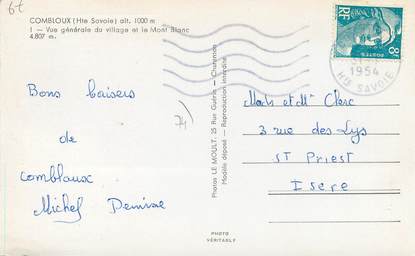 6t
COMBLOUX (Hte Savoie) alt. 1000 m
1 - Vue générale du village et le Mont Blanc
4.807 m.
Bons baisers
de
combloux
Michel Denise
74
Photos LE MOULT, 25 Rue Guérin - Charenton
Modèle déposé - Reproduction interdite
PHOTO
VÉRITABLE
RF
8F
1954
Hte SAVOIE
et Mr Clerc
3 rue des Lys
St Priest
Isere